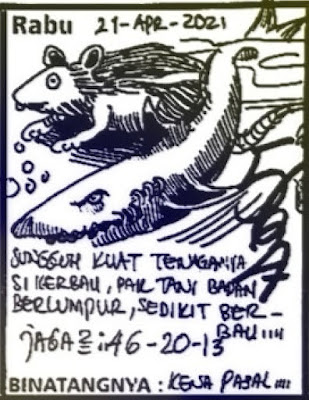 Rabu 21-APR-2021
SUNGGUH KUAT TENAGANYA
SI KERBAU, PAK TANI BADAN
BERLUMPUR, SEDIKIT BER-
BAU....
JAGA2: 46-20-13
BINATANGNYA : KENA PAJAL....